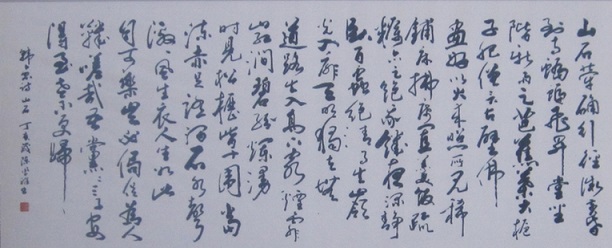 山石犖确行徑微黃昏
到寺蝙蝠飛升堂坐
階新雨足芭蕉葉大梔
子肥僧言古壁佛
畫好以火來照所見稀
鋪床拂席置羹飯疏
糲亦足飽我飢夜深靜
臥百蟲絕清月出嶺
光入扉天明獨去無
道路出入高下窮煙霏
山紅澗碧紛爛漫
時見松櫪皆十圍當
流赤足蹋澗石水聲
激激風生衣人生如此
自可樂豈必侷促為人
鞿嗟哉吾黨二三子安
得至老不更歸
韓愈詩山石